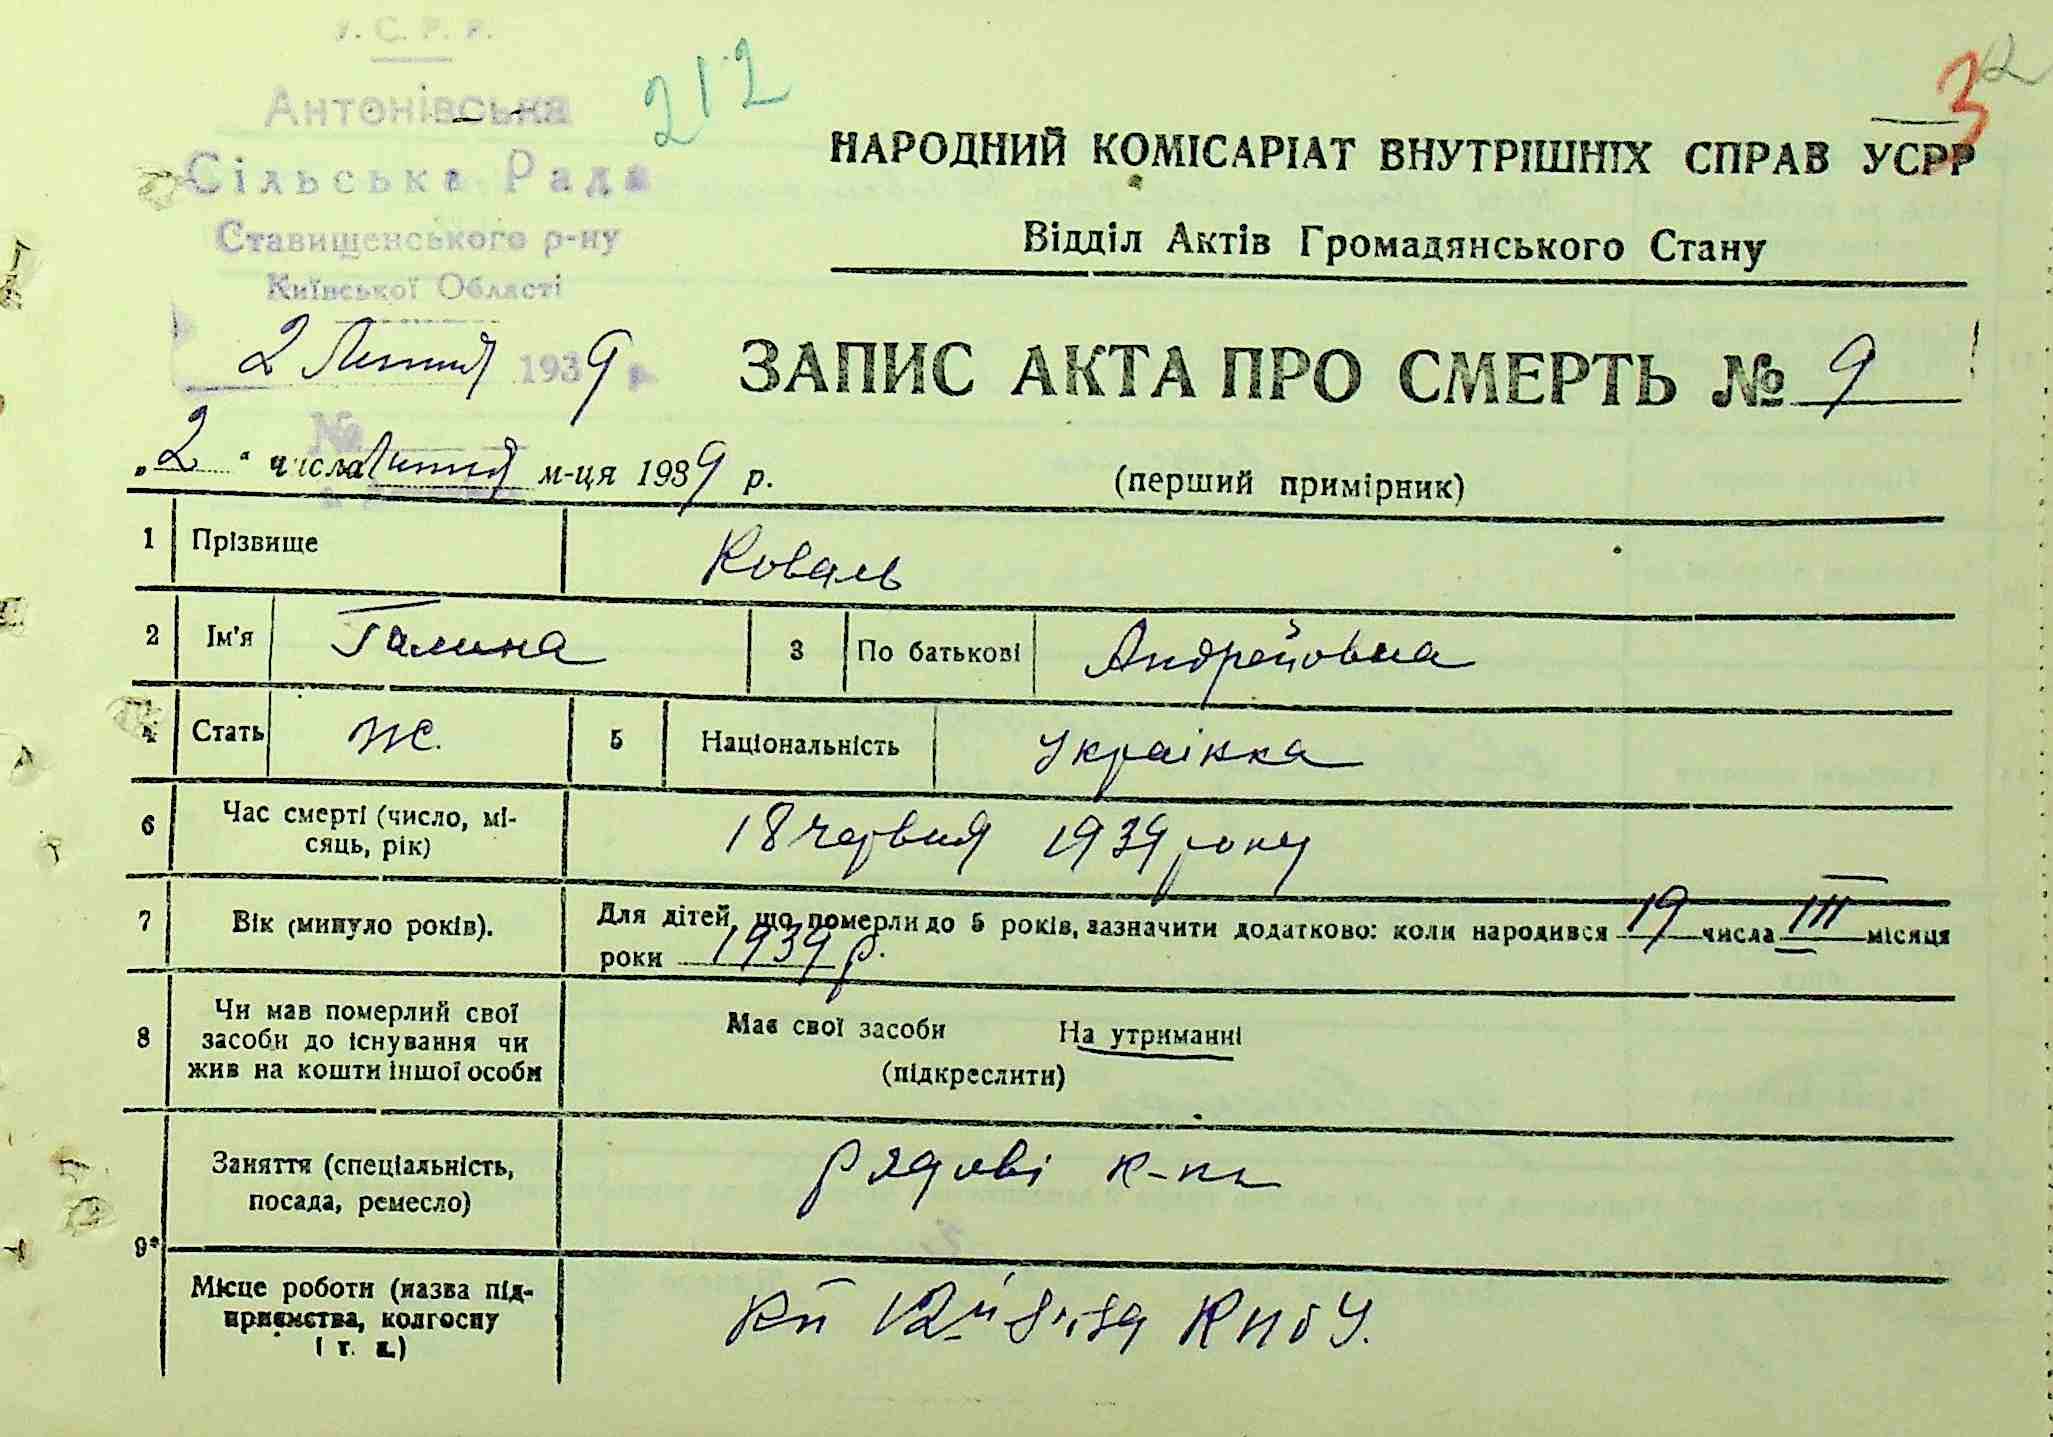 У. С. Р. Р.
Антонівська
Сільська Рада
Ставищенського р-ну
Київської Області
2 Липня 1939 р.
№
212
3
2
НАРОДНИЙ КОМІСАРІАТ ВНУТРІШНІХ СПРАВ УСРР
Відділ Актів Громадянського Стану
ЗАПИС АКТА ПРО СМЕРТЬ № 9
„2“ числа липня м-ця 1939 р.
(перший примірник)
1 Прізвище Коваль
2 Ім'я Галина 3 По батькові Андрейовна
4 Стать Ж. 5 Національність Українка
6 Час смерті (число, мі-
сяць, рік) 18 червня 1939 року
7 Вік (минуло років). Для дітей, що померли до 5 років, зазначити додатково: коли народився 19 числа III місяця
роки 1939 р.
8 Чи мав померлий свої
засоби до існування чи
жив на кошти іншої особи
Має свої засоби На утриманні
(підкреслити)
9* Заняття (спеціальність,
посада, ремесло) рядові к-пи
Місце роботи (назва під-
приємства, колгоспу
і т. д.) 12 КП б У.